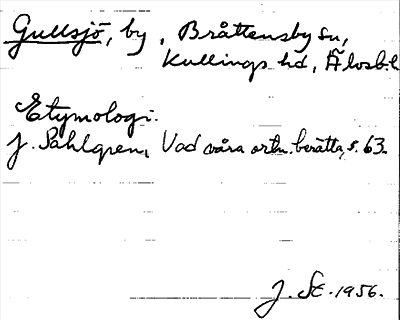 Gullsjö, by, Bråttensby sn,
Kullings hd, Älvsb.l
Etymologi.
J. Sahlgren, Vad våra ortn. berätta, s. 63.
J. St. 1956.